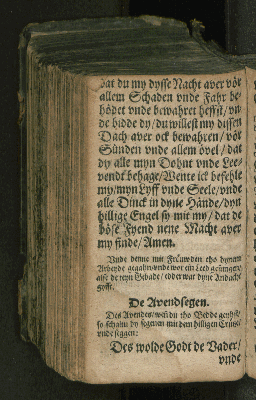 dat du my dysse Nacht aver vör
allem Schaden vnde Fahr be-
hödet vnde bewahret heffst/ vn-
de bidde dy/ du willest my dissen
Dach aver ock bewahren/ vör
Sünden vnde allem övel/ dat
dy alle myn Dohnt vnde Lee-
vendt behage/ Wente ick befehle
my/ myn Lyff vnde Seele/ vnde
alle Dinck in dyne Hände/ dyn
hillige Engel sy mit my/ dat de
böse Fyend nene Macht aver
my finde/ Amen.
Vnde denne mit Fröuwden tho dynem
Arbeyde gegahn/ vnde wor ein Leed gesungen/
alse de teyn Gebade/ edder wat dyne Andacht
gyfft.
De Avendsegen.
Des Avendes/ wen du tho Bedde geyhst/
so schaltu dy segenen mit dem hilligen Crütze/
vnde seggen:
Des wolde Godt de Vader/
vnde